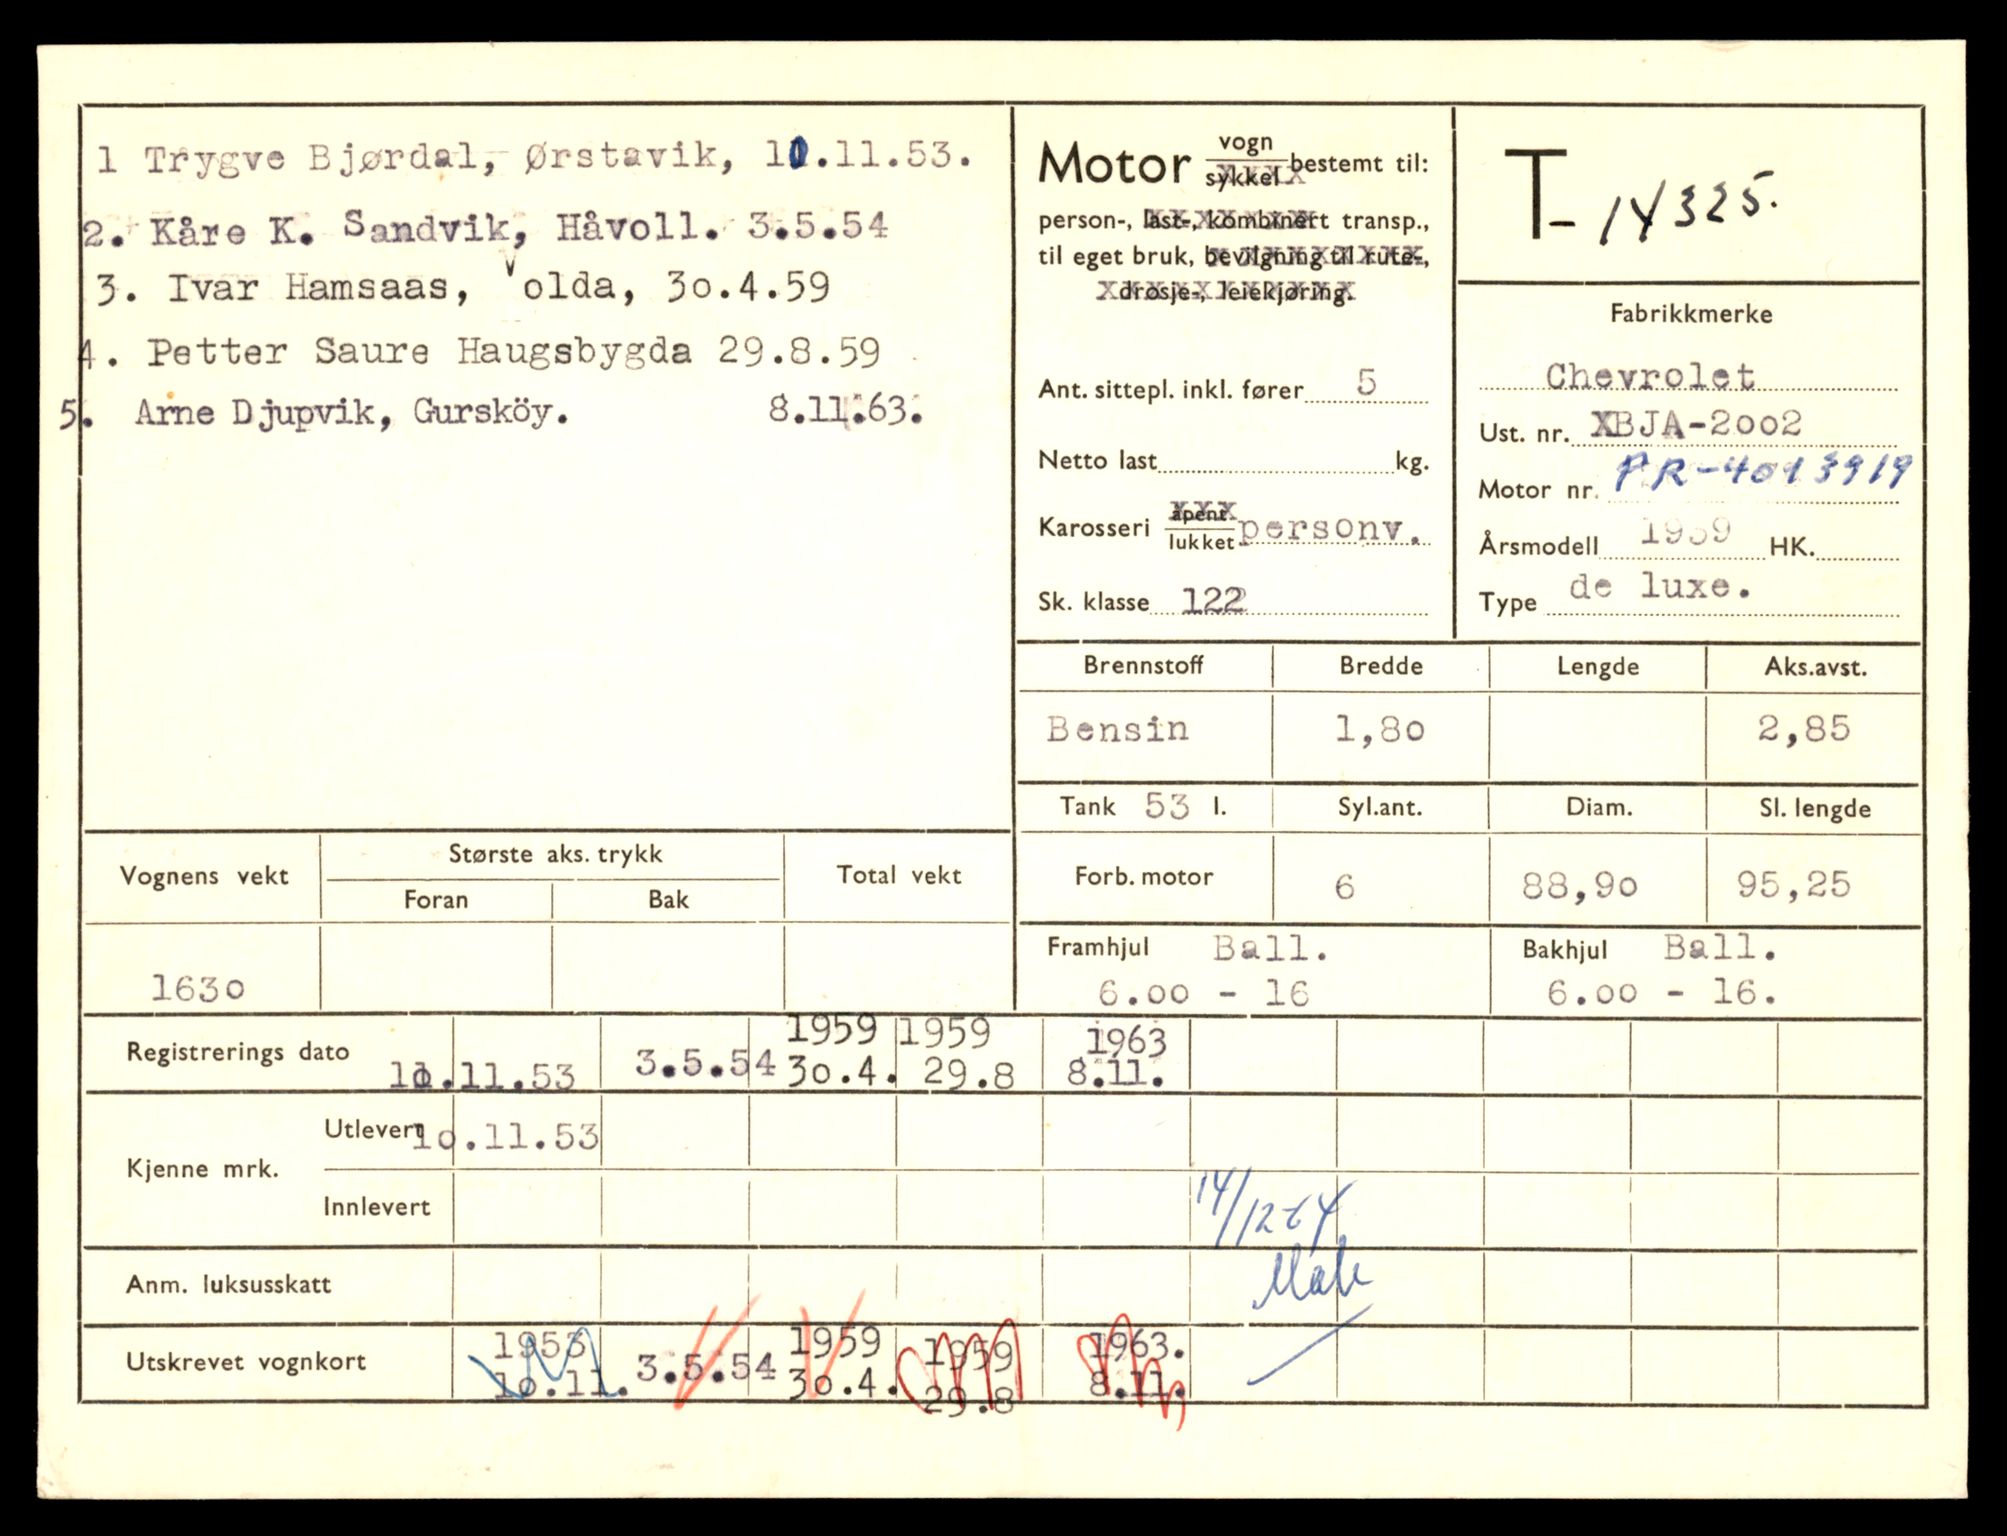 1 Trygve Bjørdal, Ørstavik, 10.11.53.
2. Kåre K. Sandvik, Håvoll. 3.5.54
3. Ivar Hamsaas, Volda, 30.4.59
4. Petter Saure Haugsbygda 29.8.59
5. Arne Djupvik, Gursköy. 8.11.63.
Motor vogn sykkel bestemt til:
person-, last-, kombinert transp.,
til eget bruk, bevilgning til rute-,
drosje-, leiekjøring.
Ant. sittepl. inkl. fører 5
Netto last kg.
Karosseri åpent lukket personv.
Sk. klasse 122
T- 14325.
Fabrikkmerke
Chevrolet
Ust. nr. XBJA-2002
Motor nr. PR-4013919
Årsmodell 1939 HK.
Type de luxe.
Brennstoff Bredde Lengde Aks.avst.
Bensin 1,80 2,85
Tank 53 l. Syl.ant. Diam. Sl. lengde
Forb. motor 6 88,90 95,25
Framhjul Ball. Bakhjul Ball.
6.00 - 16 6.00 - 16.
Vognens vekt Største aks. trykk Total vekt
Foran Bak
1630
1959 1959 1963
Registrerings dato 10.11.53 3.5.54 30.4. 29.8 8.11.
Kjenne mrk. Utlevert 10.11.53
Innlevert 14/12 64
Anm. luksusskatt
1953 1959 1959 1963.
Utskrevet vognkort 10.11. 3.5.54 30.4. 29.8 8.11.